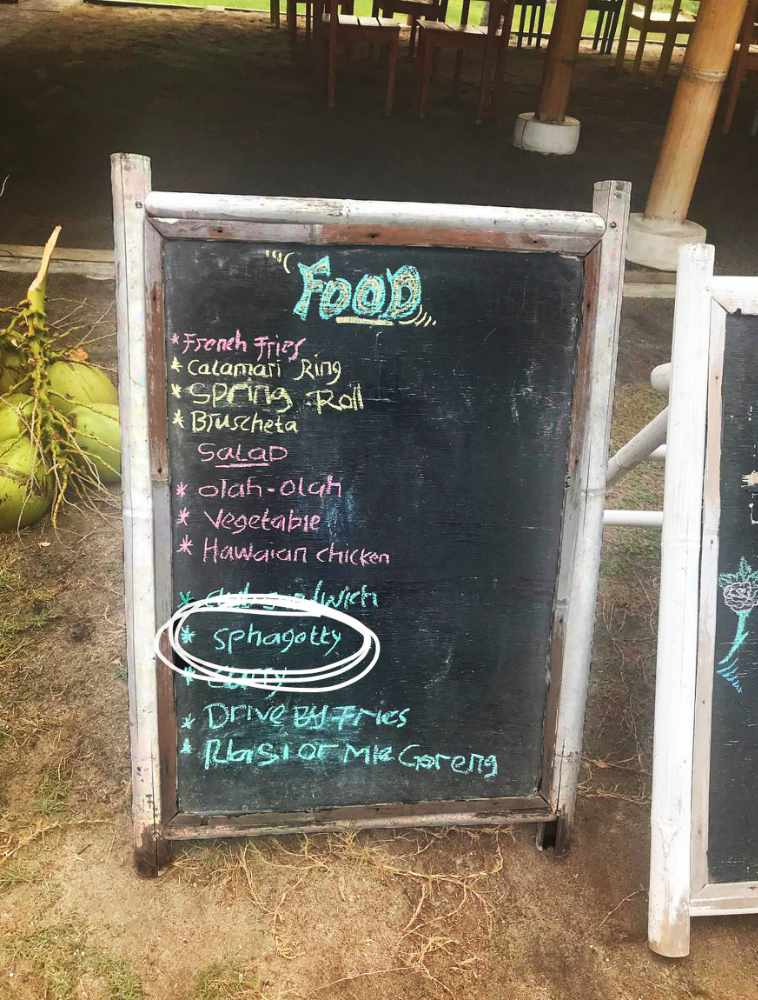 FOOD
* French Fries
* Calamari Ring
* Spring Roll
* Bruscheta
SALAD
* olah-olah
* Vegetable
* Hawaian chicken
* club sandwich
* sphagotty
* Curry
* Drive By Fries
* Nasi or Mie Goreng